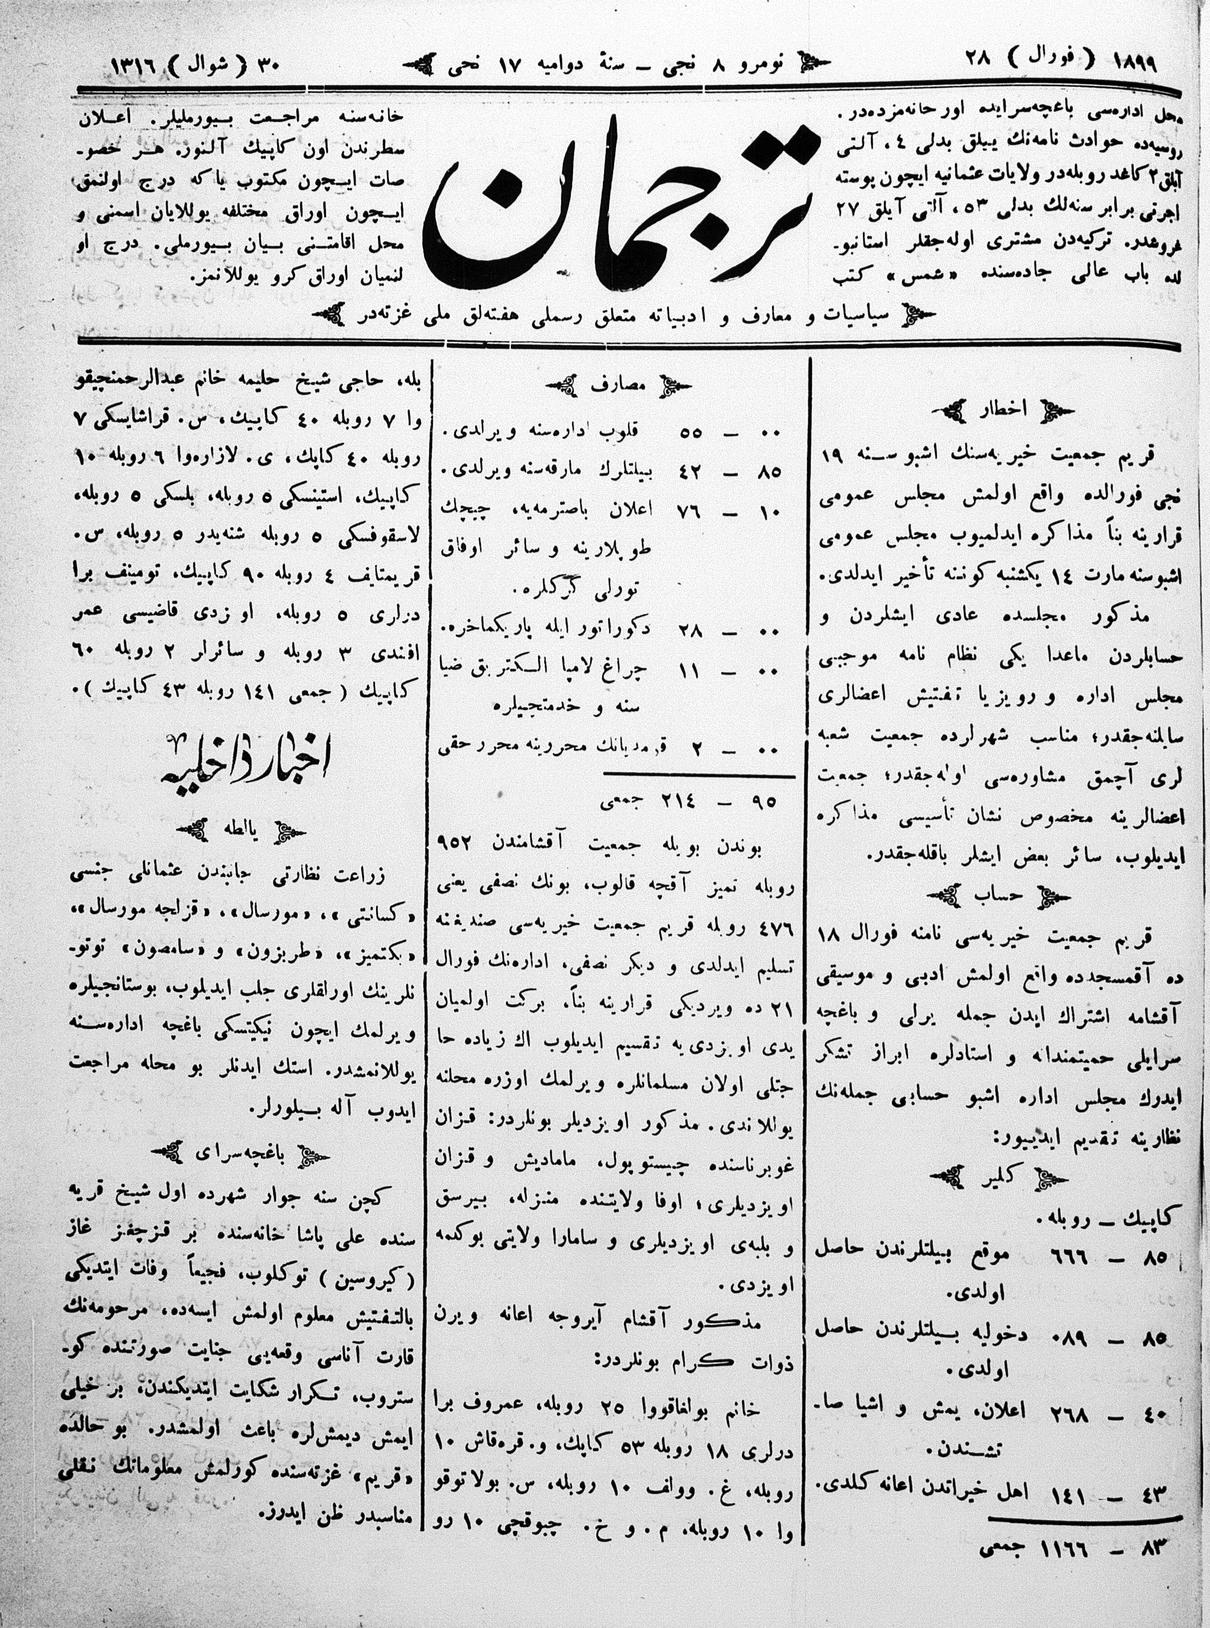 ١٨٩٩ ( فورال ) ٢٨
نومرو ٨ نجی — سنهٔ دوامیه ١٧ نجی
٣٠ ( شوال ) ١٣١٦
محل اداره‌سی باغچه‌سرایده اورحانه‌مزده‌در.
روسیه‌ده حوادث نامه‌نك ییللق بدلی ٤، آلتی
آیلق ٢ كاغد روبله‌در ولایات عثمانیه ایچون پوسته
اجرتی برابر سنه‌لك بدلی ٥٣، آلتی آیلق ٢٧
غروشدر. تركیه‌دن مشتری اوله‌جقلر استانبو-
لده باب عالی جاده‌سنده «شمس» كتب
ترجمان
خانه‌سنه مراجعت بیورملیلر. اعلان
سطرندن اون كاپیك آلنور. هر خصو-
صات ایچون مكتوب یاكه درج اولنمق
ایچون اوراق مختلفه یوللایان اسمنی و
محل اقامتنی بیان بیورملی. درج او
لنمیان اوراق كرو یوللانمز.
سیاسیات و معارف و ادبیاته متعلق رسملی هفته‌لق ملی غزته‌در
اخطار
قریم جمعیت خیریه‌سنك اشبو سنه ١٩
نجی فورالده واقع اولمش مجلس عمومی
قرارینه بناً مذاكره ایدلمیوب مجلس عمومی
اشبوسنه مارت ١٤ یكشنبه كوننه تأخیر ایدلدی.
مذكور مجلسده عادی ایشلردن و
حسابلردن ماعدا یكی نظام نامه موجبی
مجلس اداره و رویزیا تفتیش اعضالری
سایلنه‌جقدر؛ مناسب شهرلرده جمعیت شعبه
لری آچمق مشاوره‌سی اوله‌جقدر؛ جمعیت
اعضالرینه مخصوص نشان تأسیسی مذاكره
ایدیلوب، سائر بعض ایشلر باقله‌جقدر.
حساب
قریم جمعیت خیریه‌سی نامنه فورال ١٨
ده آقمسجدده واقع اولمش ادبی و موسیقی
آقشامه اشتراك ایدن جمله یرلی و باغچه
سرایلی حمیتمندانه و استادلره ابراز تشكر
ایدرك مجلس اداره اشبو حسابی جمله‌نك
نظارینه تقدیم ایدییور:
كلیر
كاپیك — روبله.
٨٥ — ٦٦٦ موقع بیلتلرندن حاصل
اولدی.
٨٥ — ٠٨٩ دخولیه بیلتلرندن حاصل
اولدی.
٤٠ — ٢٦٨ اعلان، یمش و اشیا صا-
تشندن.
٤٣ — ١٤١ اهل خیراتدن اعانه كلدی.
٨٣ — ١١٦٦ جمعی
مصارف
٠٠ — ٥٥ قلوب اداره‌سنه ویرلدی.
٨٥ — ٤٢ بیلتلرك مارقه‌سنه ویرلدی.
١٠ — ٧٦ اعلان باصترمه‌یه، چیچك
طوپلارینه و سائر اوفاق
تورلی كركلره.
٠٠ — ٢٨ دكوراتور ایله پاریكماخره.
٠٠ — ١١ چراغ لامپا الكتریق ضیا
سنه و خدمتجیلره
٠٠ — ٢ محررینه محرر حقی
٩٥ — ٢١٤ جمعی
بوندن بویله جمعیت آقشامندن ٩٥٢
روبله تمیز آقچه قالوب، بونك نصفی یعنی
٤٧٦ روبله قریم جمعیت خیریه‌سی صندیغنه
تسلیم ایدلدی و دیكر نصفی، اداره‌نك فورال
٢١ ده ویردیكی قرارینه بناً، بركت اولمیان
یدی اویزدی‌یه تقسیم ایدیلوب اك زیاده حا
جتلی اولان مسلمانلره ویرلمك اوزره محلنه
یوللاندی. مذكور اویزدیلر بونلردر: قزان
غوبرناسنده چیستوپول، مامادیش و قزان
اویزدیلری؛ اوفا ولایتنده منزله، بیرسق
و بلبه‌ی اویزدیلری و سامارا ولایتی بوكلمه
اویزدی.
مذكور آقشام آیروجه اعانه ویرن
ذوات كرام بونلردر:
خانم بولغاقووا ٢٥ روبله، عمروف برا
درلری ١٨ روبله ٥٣ كاپك، و. قره‌قاش ١٠
روبله، غ. وولف ١٠ روبله، س. بولاتوقو
وا ١٠ روبله، م. و خ. چبوقچی ١٠ رو
بله، حاجی شیخ حلیمه خانم عبدالرحمنچیقو
وا ٧ روبله ٤٠ كاپیك، س. قراشایسكی ٧
روبله ٤٠ كاپك، ی. لازاره‌وا ٦ روبله ١٠
كاپیك، استینسكی ٥ روبله، بلسكی ٥ روبله،
لاسقوفسكی ٥ روبله شنه‌یدر ٥ روبله، س.
قریمتایف ٤ روبله ٩٠ كاپیك، تومینف برا
درلری ٥ روبله، اوزدی قاضیسی عمر
افندی ٣ روبله و سائرلر ٢ روبله ٦٠
كاپیك ( جمعی ١٤١ روبله ٤٣ كاپیك ).
اخبار داخلیه
یالطه
زراعت نظارتی جانبندن عثمانلی جنسی
«كسانتی»، «مورسال»، «قزلجه مورسال»،
«بكتمیز»، «طربزون» و «سامصون» توتو-
نلرینك اورلقلری جلب ایدیلوب، بوستانجیلره
ویرلمك ایچون نیكیتسكی باغچه اداره‌سنه
یوللانمشدر. استك ایدنلر بو محله مراجعت
ایدوب آله بیلورلر.
باغچه‌سرای
كچن سنه جوار شهرده اول شیخ قریه
سنده علی پاشا خانه‌سنده بر قزچغز غاز
( كیروسین ) توكلوب، فجیعاً وفات ایتدیكی
بالتفتیش معلوم اولمش ایسه‌ده، مرحومه‌نك
قارت آناسی وقعه‌یی جنایت صورتنده كو-
ستروب، تكرار شكایت ایتدیكندن، بر خیلی
ایمش دیمش‌لره باعث اولمشدر. بو حالده
«قریم» غزته‌سنده كورلمش معلوماتك نقلی
مناسبدر ظن ایدرز.